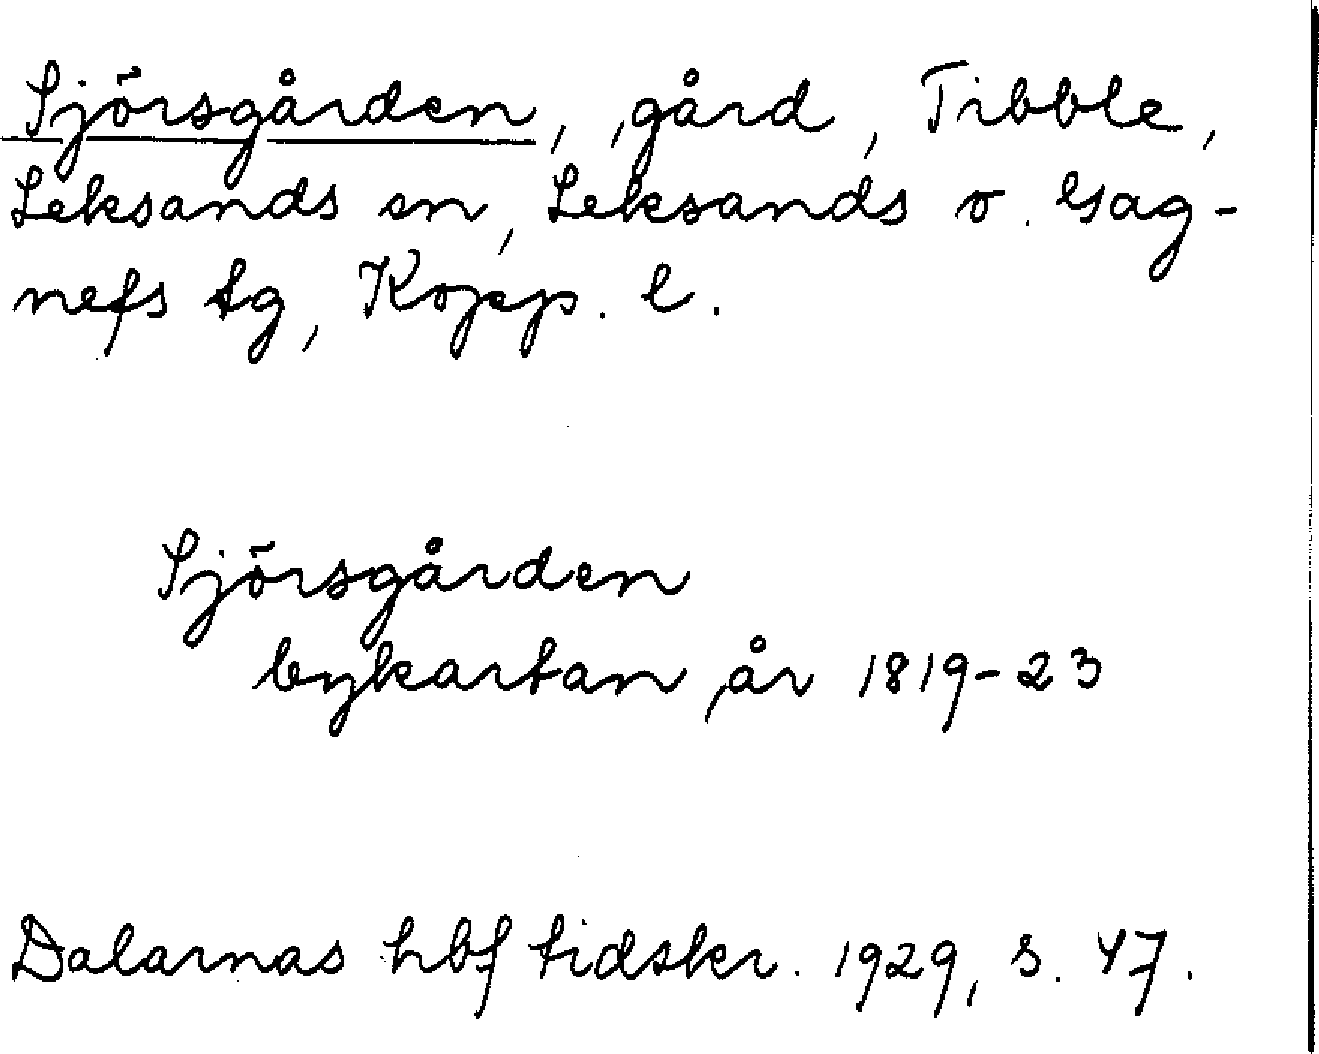 Sjörsgården, gård, Tibble,
Leksands sn, Leksands o. Gag-
nefs tg, Kopp. l.
Sjörsgården
bykartan år 1819-23
Dalarnas hbf tidskr. 1929, s. 47.